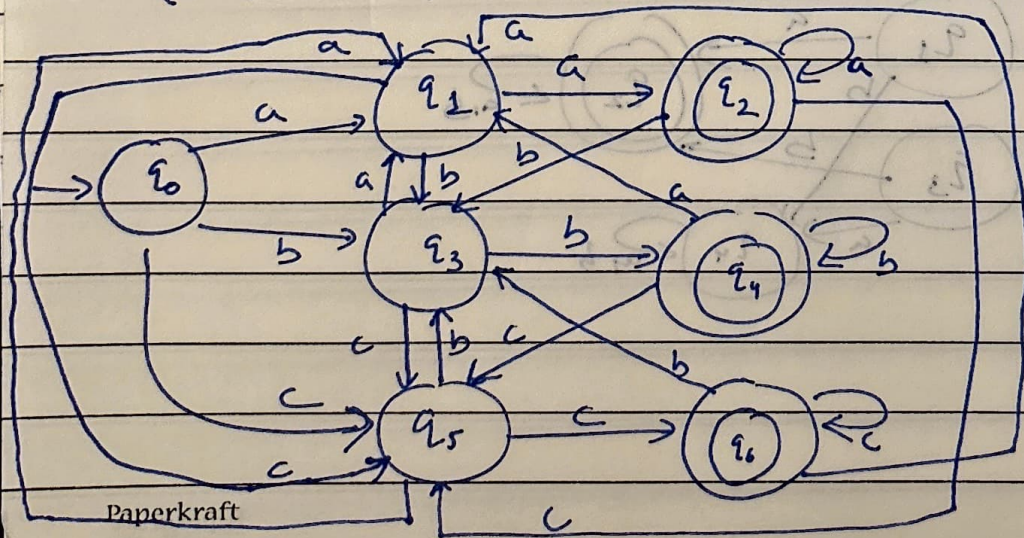 a
a
a
a
q1
q2
a
b
q0
a
b
a
b
q3
b
q4
b
c
b
c
b
c
q5
c
q6
c
c
Paperkraft
c